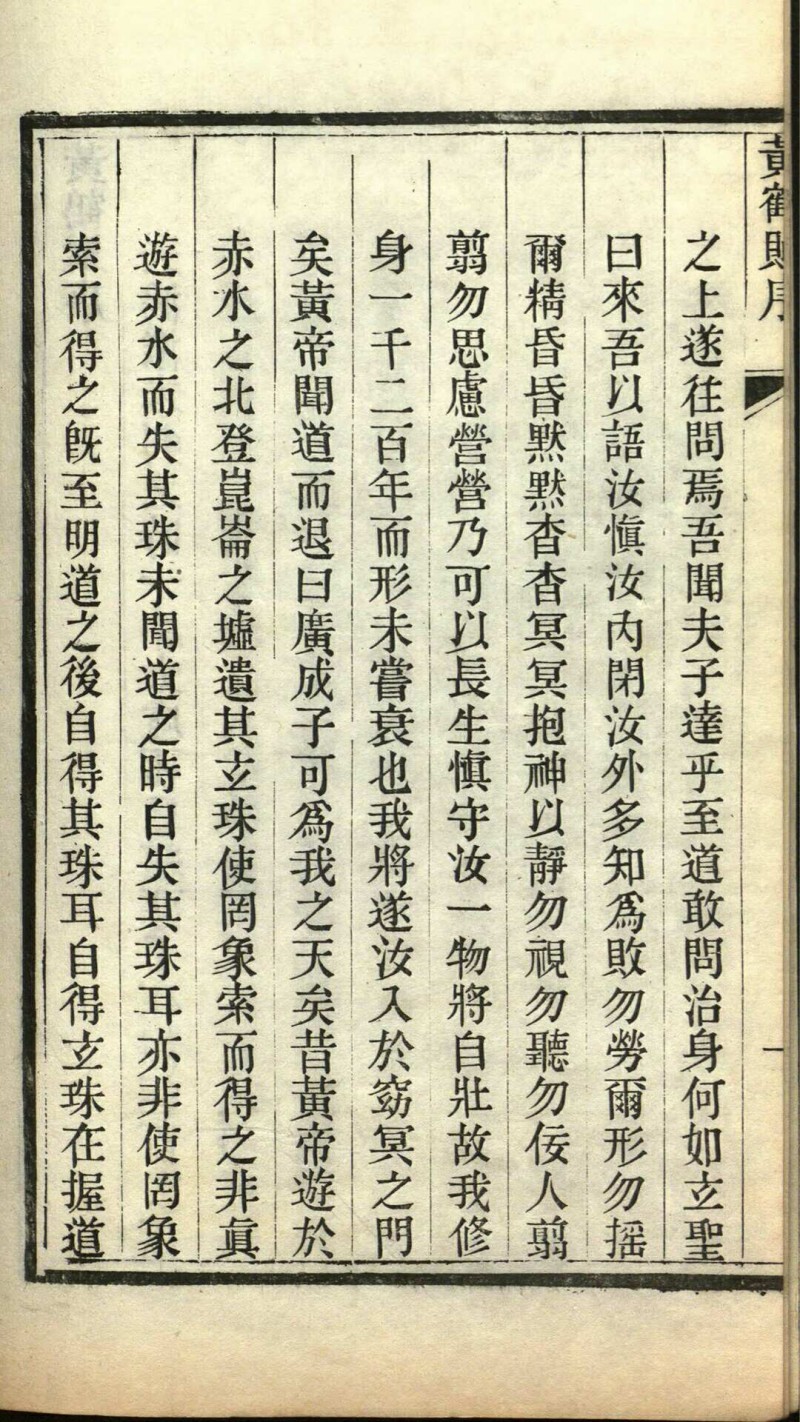 黃鶴賦序
一
之上遂往問焉吾聞夫子達乎至道敢問治身何如玄聖
曰來吾以語汝愼汝內閉汝外多知爲敗勿勞爾形勿搖
爾精昏昏默默杳杳冥冥抱神以靜勿視勿聽勿佞人翦
翦勿思慮營營乃可以長生愼守汝一物將自壯故我修
身一千二百年而形未嘗衰也我將遂汝入於窈冥之門
矣黃帝聞道而退曰廣成子可爲我之天矣昔黃帝遊於
赤水之北登崑崙之墟遺其玄珠使罔象索而得之非眞
遊赤水而失其珠未聞道之時自失其珠耳亦非使罔象
索而得之旣至明道之後自得其珠耳自得玄珠在握道